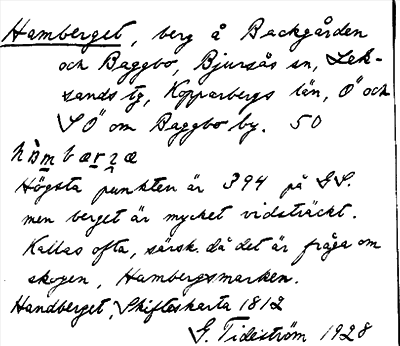 Hamberget, berg å Backgården
och Baggbo, Bjursås sn, Lek-
sands tg, Kopparbergs län, Ö och
SÖ om Baggbo by. 50
Högsta punkten är 394 på GS.
men berget är mycket vidsträckt.
Kallas ofta, särsk. då det är fråga om
skogen, Hambergsmarken.
Handberget, Skifteskarta 1812
G. Tideström 1928